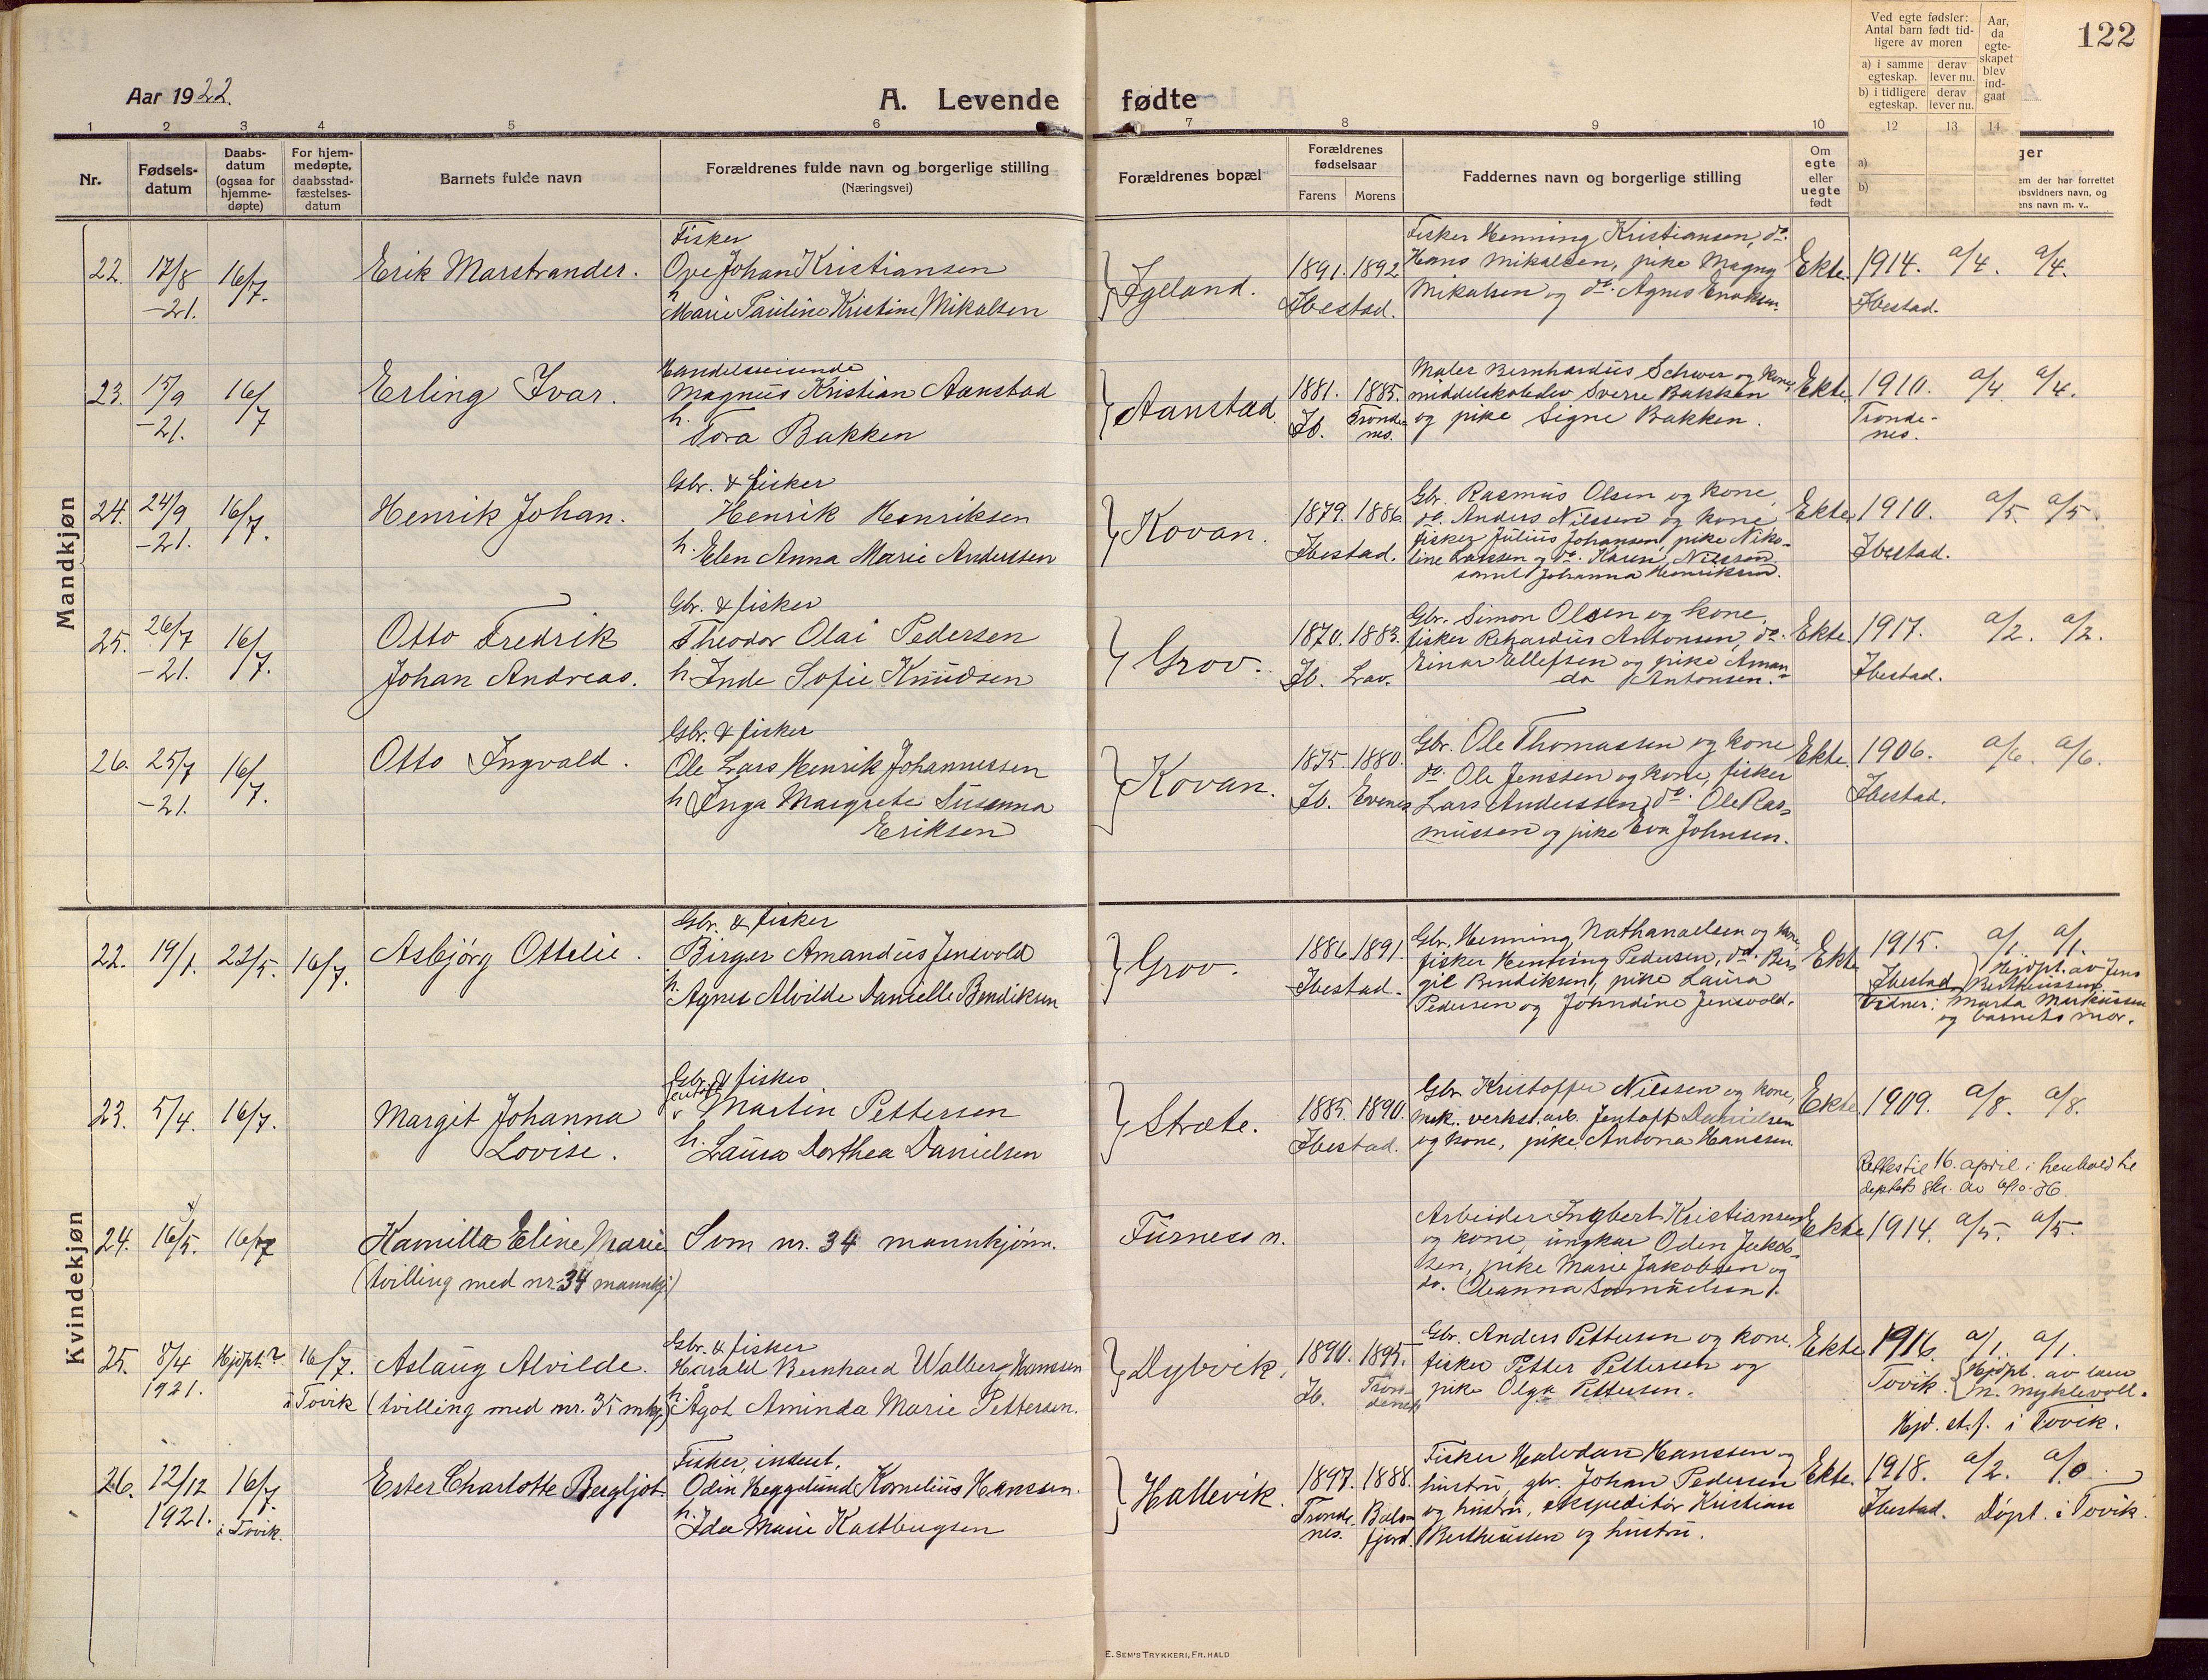 122
Aar 1922.
A. Levende fødte
Ved egte fødsler: Antal barn født tidligere av moren
a) i samme egteskap. derav lever nu.
b) i tidligere egteskap. derav lever nu.
Aar, da egteskapet blev indgaat
1 2 3 4 5 6 7 8 9 10 12 13 14
Nr.
Fødsels-datum
Daabs-datum (ogsaa for hjemme-døpte)
For hjem-medøpte, daabsstad-fæstelses-datum
Barnets fulde navn
Forældrenes fulde navn og borgerlige stilling
(Næringsvei)
Forældrenes bopæl
Forældrenes fødselsaar
Farens Morens
Faddernes navn og borgerlige stilling
Om egte eller uegte født
a)
b)
Mandkjøn
22. 17/8 -21. 16/7. Erik Marstrander.
Fisker
Ove Johan Kristiansen
h
Marie Pauline Kristine Mikalsen
Igeland. 1891. 1892 Ibestad.
Fisker Henning Kristiansen, do.
Hans Mikalsen, pike Magny
Mikalsen og do. Agnes Enoksen.
Ekte. 1914. a/4. a/4.
Ibestad.
23. 15/9 -21. 16/7 Erling Ivar.
Handelsreisende
Magnus Kristian Aanstad
h.
Tora Bakken
Aanstad. 1881. 1885. Ib. Trondenes.
Maler Bernhardus Schwer og kone,
middelskoleelev Sverre Bakken
og pike Signe Bakken.
Ekte. 1910. a/4 a/4.
Tronde-
nes.
24. 24/9 -21. 16/7. Henrik Johan.
Gbr. & fisker
Henrik Henriksen
h. Elen Anna Marie Anderssen
Kovan. 1879. 1886. Ibestad.
Gbr. Rasmus Olsen og kone,
do. Anders Nilssen og kone,
fisker Julius Johansen, pike Niko-
line Larssen og do. Karen Nilssen
samt Johanna Henriksen.
Ekte 1910. a/5 a/5.
Ibestad.
25. 26/7 -21. 16/7. Otto Fredrik
Johan Andreas.
Gbr. & fisker
Theodor Olai Pedersen
h. Inde Sofie Knudsen
Grov. 1870. 1883. Ib. Lav.
Gbr. Simon Olsen og kone,
fisker Rihardus Antonsen, do.
Einar Ellefsen og pike Aman-
da Antonsen.
Ekte. 1917. a/2. a/2.
Ibestad.
26. 25/7 -21. 16/7. Otto Ingvald.
Gbr. & fisker
Ole Lars Henrik Johannessen
h. Inga Margrete Susanna
Eriksen
Kovan. 1875. 1880. Ib. Evenes
Gbr. Ole Thomassen og kone
do. Ole Jenssen og kone, fisker
Lars Anderssen, do. Ole Ras-
mussen og pike Eva Johnsen.
Ekte. 1906. a/6. a/6.
Ibestad.
Kvindekjøn
22. 19/1. 22/5. 16/7. Asbjörg Ottelie.
Gbr. & fisker
Birger Amandus Jensvold
h.
Agnes Alvilde Danielle Bendiksen
Grov. 1886. 1891. Ibestad.
Gbr. Henning Nathanaelsen og kone,
fisker Henning Pedersen, do. Ber-
gil Bendiksen, pike Laura
Pedersen og Johndine Jensvold.
Ekte 1915. a/1 a/1.
Ibestad. Hjdpt. av Jens
Bertheussen
Vidner: Marta Markussen
og barnets mor.
23. 5/4. 16/7. Margit Johanna
Lovise.
Gbr. & fisker
Jentoft
v Martin Pettersen
h. Laura Dorthea Danielsen
Stræte. 1885. 1890. Ibestad.
Gbr. Kristoffer Nilssen og kone,
mek. verkst. arb. Jentoft Danielsen
og kone, pike Antona Hanssen.
Ekte 1909. a/8. a/8.
Rettes til 16. april i henhold til
deptets skr. av 6/10-36.
24. 16/5. 16/7 Kamilla Eline Marie
(tvilling med nr. 34 mannkj.)
Som nr. 34 mannkjönn.
Furness n.
Arbeider Ingbert Kristiansen
og kone, ungkar Odin Jakob-
sen, pike Marie Jakobsen og
do. Oleanna Samuelsen.
Ekte 1914. a/5. a/5.
25. 8/4 1921. Hjdpt.? 16/7. i Tovik Aslaug Alvilde.
(tvilling med nr. 35 mkj.)
Gbr. & fisker
Harald Bernhard Walberg Hanssen
h.
Ågot Aminda Marie Pettersen.
Dybvik. 1890. 1895. Ib. Trondenes
Gbr. Anders Pettersen og kone,
fisker Petter Pettersen og
pike Olga Pettersen.
Ekte 1916. a/1. a/1.
Tovik. Hjdpt. av lærer
M. Myklevoll.
Hjd. st.f. i Tovik.
26. 12/12 1921. 16/7. i Tovik. Ester Charlotte Bergljot.
Fisker, inderst.
Odin Heggelund Kornelius Hanssen.
h.
Ida Marie Kastbugsen
Hallevik. 1897. 1888. Tronde-
nes. Bals-
fjord.
Fisker Halvdan Hanssen og
hustru, gbr. Johan Pedersen
og hustru, ekspeditör Kristian
Bertheussen og hustru.
Ekte. 1918. a/2. a/0.
Ibestad. Döpt i Tovik.
E. SEM'S TRYKKERI, FR.HALD